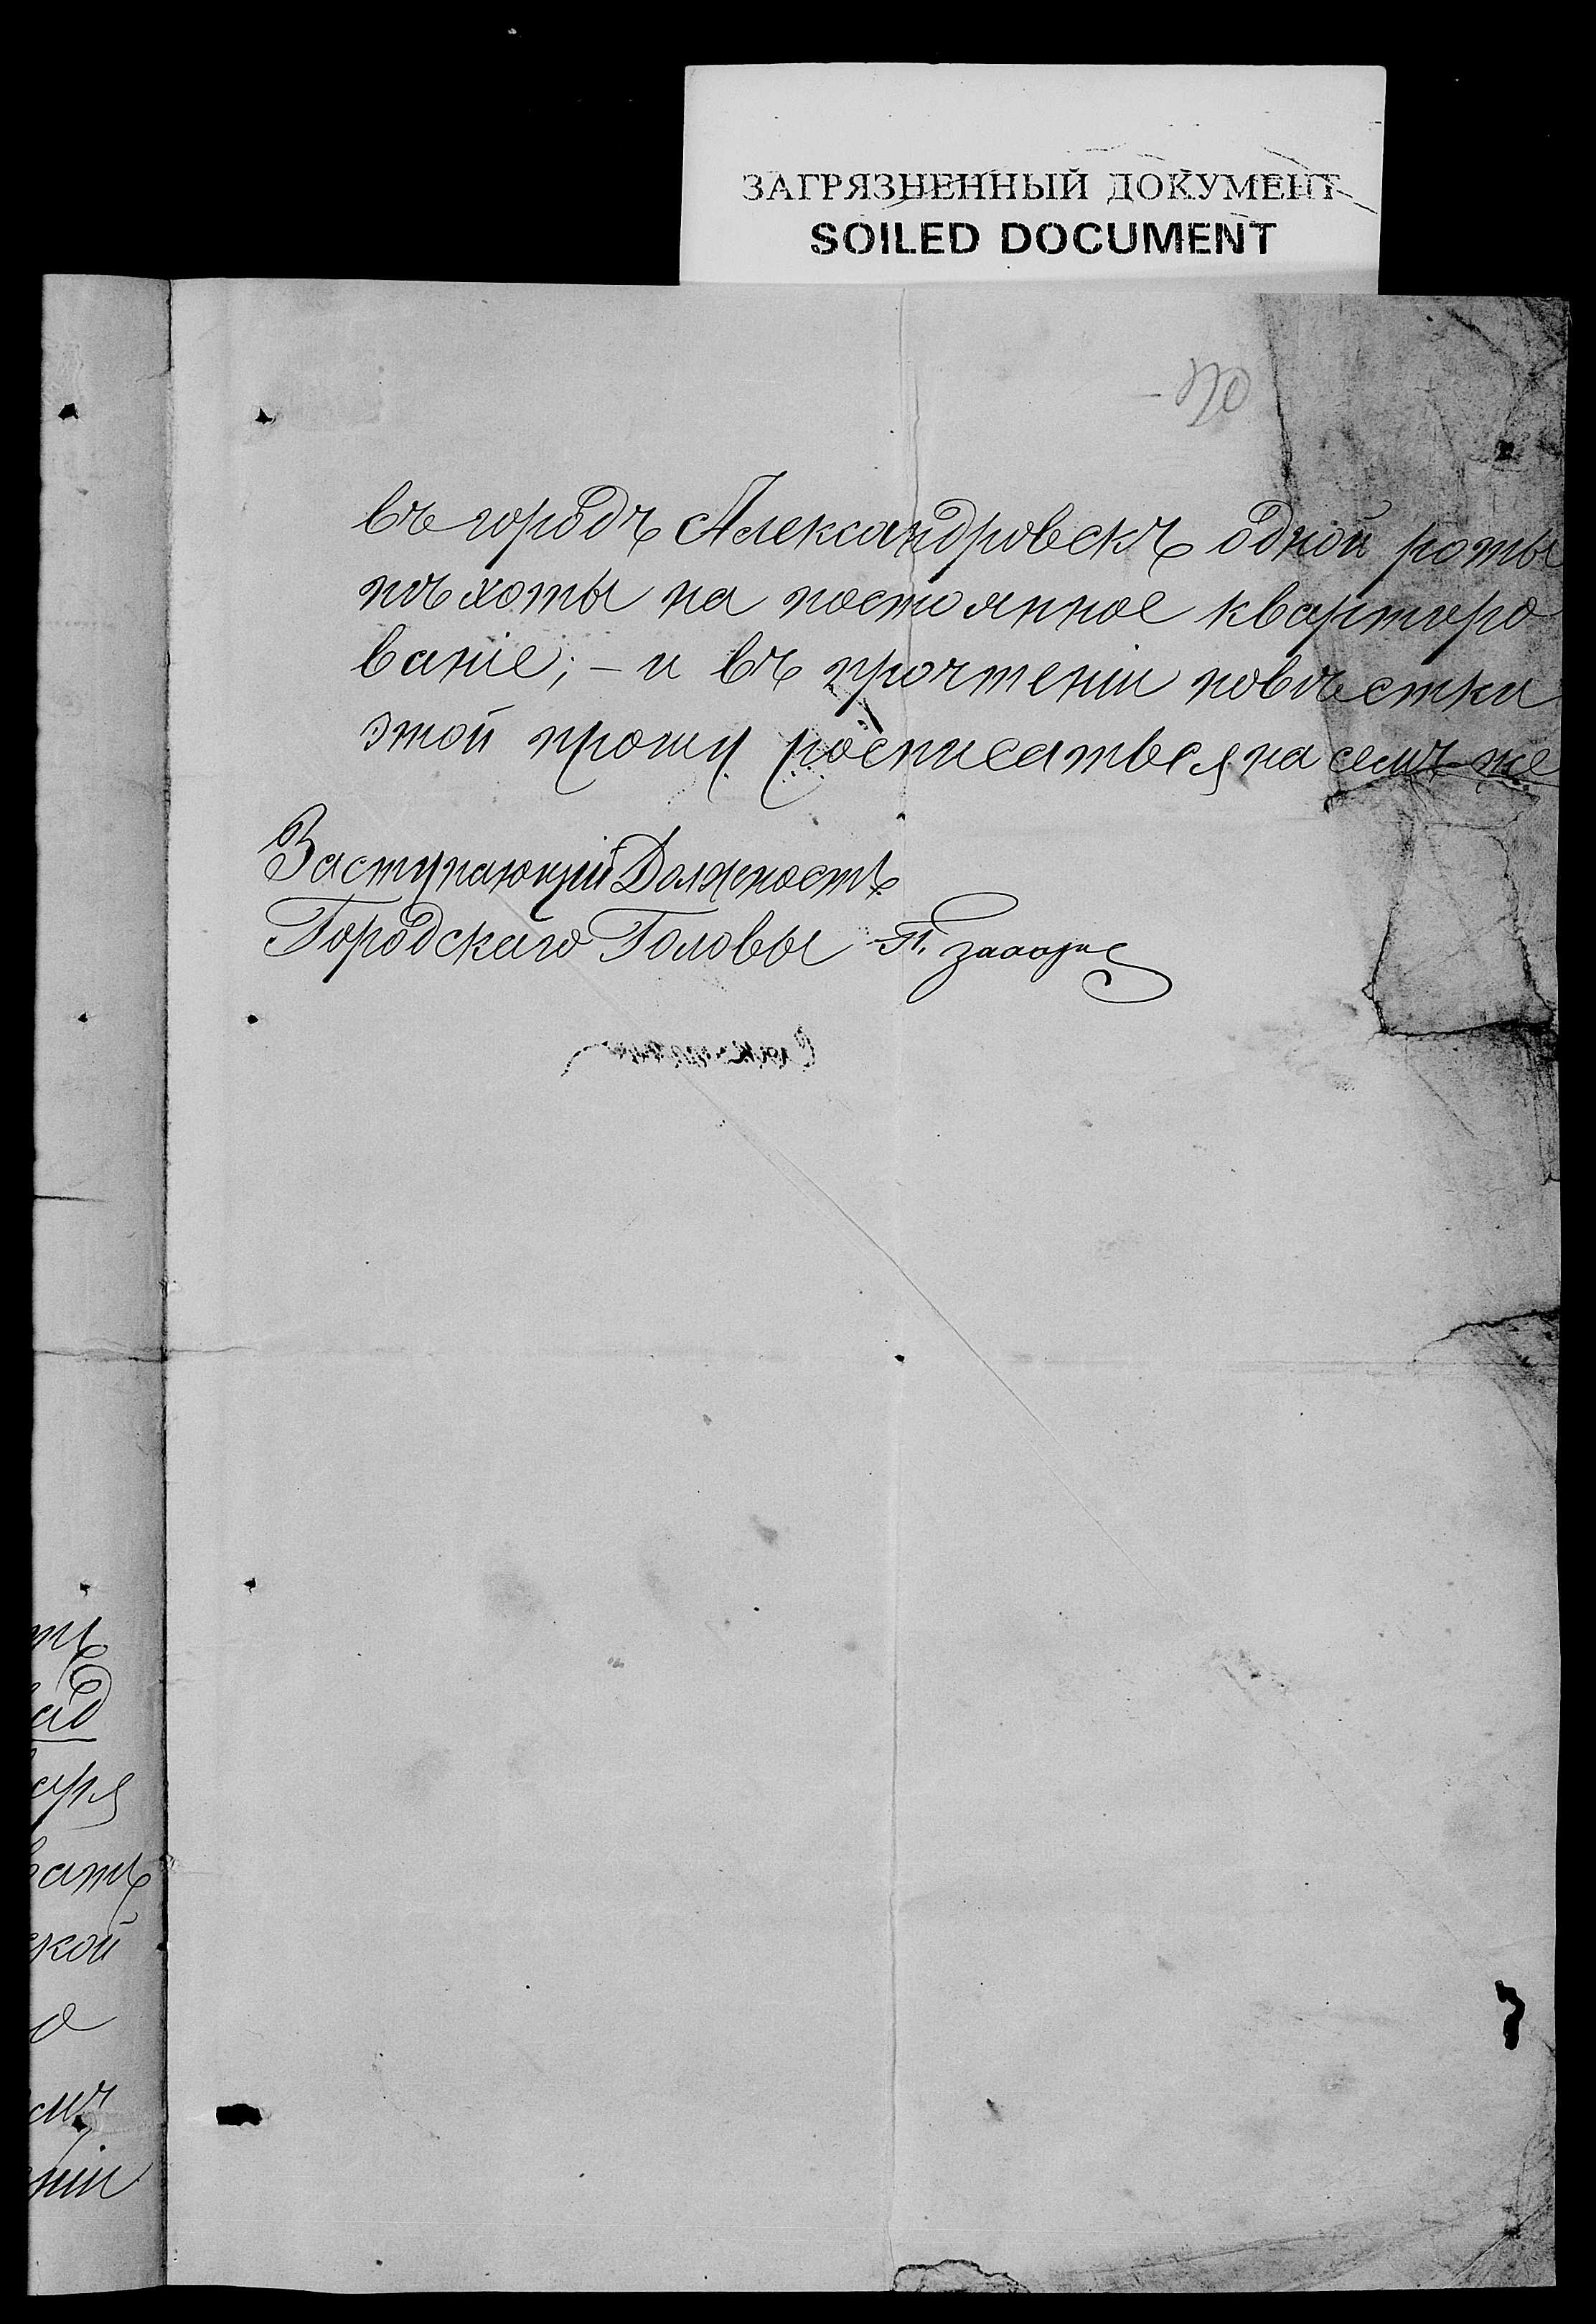 ЗАГРЯЗНЕННЫЙ ДОКУМЕНТ
SOILED DOCUMENT
въ городѣ Александровскѣ одной роты
пѣхоты на постоянное квартиро
ваніе; – и въ прочтеніи повѣстки
этой прошу росписаться на семъ-же
Заступающій Должность
Городскаго Головы П.
ад
аря
вать
ской
о
емъ
ніи